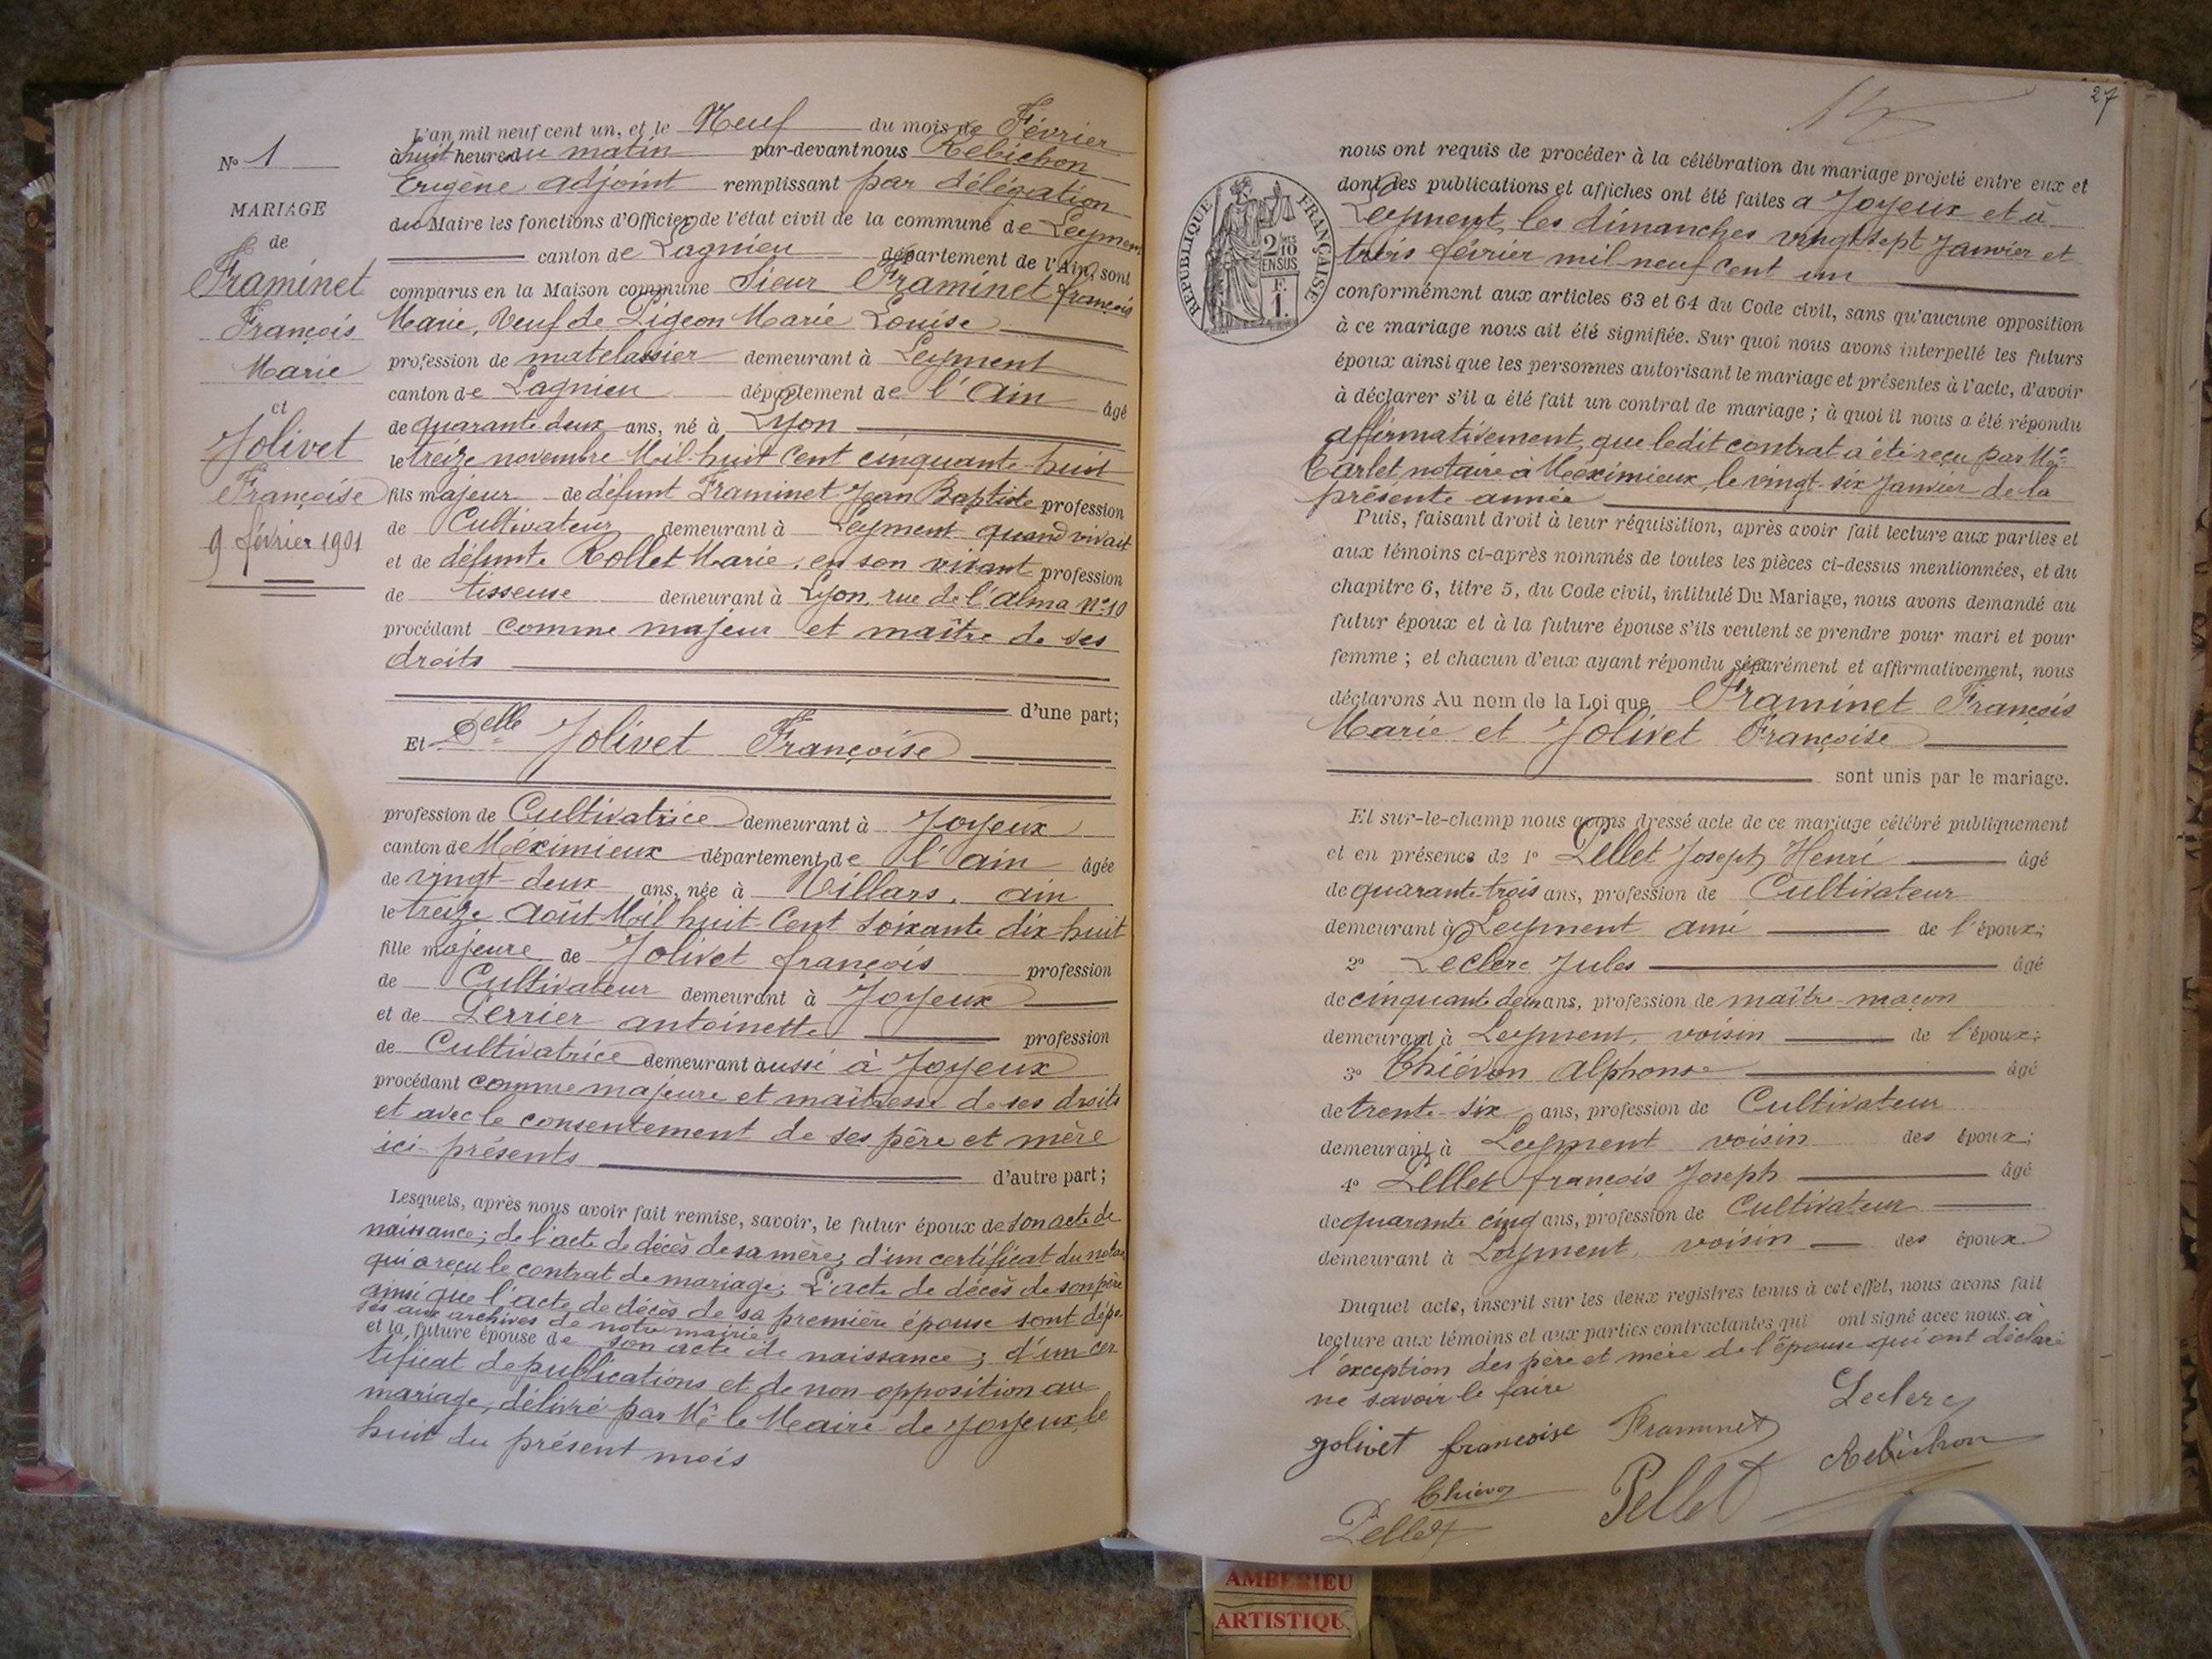 N° 1
MARIAGE
de
Framinet
François
Marie
et
Jolivet
Françoise
9 février 1901
L'an mil neuf cent un, et le Neuf du mois de Février
à huit heures du matin par-devant nous Rebichon
Eugène adjoint remplissant par délégation
du Maire les fonctions d'Officier de l'état civil de la commune de Leyment
canton de Lagnieu département de l'Ain, sont
comparus en la Maison commune Sieur Framinet françois
Marie, Veuf de Pigeon Marie Louise
profession de matelassier demeurant à Leyment
canton de Lagnieu département de l'Ain âgé
de quarante deux ans, né à Lyon
le treize novembre Mil huit cent cinquante-huit
fils majeur de défunt Framinet Jean Baptiste profession
de Cultivateur demeurant à Leyment quand vivait
et de défunte Rollet Marie, en son vivant profession
de tisseuse demeurant à Lyon, rue de l'alma N° 10
procédant comme majeur et maître de ses
droits
d'une part;
Et Delle Jolivet Françoise
profession de Cultivatrice demeurant à Joyeux
canton de Méximieux département de l'ain âgée
de vingt-deux ans, née à Villars, ain
le treize Août Mil huit Cent soixante dix huit
fille majeure de Jolivet françois profession
de Cultivateur demeurant à Joyeux
et de Perrier antoinette profession
de Cultivatrice demeurant aussi à Joyeux
procédant comme majeure et maîtresse de ses droits
et avec le consentement de ses père et mère
ici présents
d'autre part;
Lesquels, après nous avoir fait remise, savoir, le futur époux de son acte de
naissance; de l'acte de décès de sa mère; d'un certificat du notaire
qui a reçu le contrat de mariage; L'acte de décès de son père
ainsi que l'acte de décès de sa première épouse sont dépo-
sés aux archives de notre mairie
et la future épouse de son acte de naissance; d'un cer-
tificat de publications et de non opposition au
mariage, délivré par Mr le Maire de Joyeux, le
huit du présent mois
27
RÉPUBLIQUE FRANÇAISE
2/10 EN SUS
F.
1.
nous ont requis de procéder à la célébration du mariage projeté entre eux et
dont les publications et affiches ont été faites à Joyeux et à
Leyment, les dimanches vingt sept Janvier et
trois février mil neuf cent un
conformément aux articles 63 et 64 du Code civil, sans qu'aucune opposition
à ce mariage nous ait été signifiée. Sur quoi nous avons interpellé les futurs
époux ainsi que les personnes autorisant le mariage et présentes à l'acte, d'avoir
à déclarer s'il a été fait un contrat de mariage; à quoi il nous a été répondu
affirmativement, que ledit contrat a été reçu par Me
Carlet, notaire à Méximieux, le vingt-six Janvier de la
présente année
Puis, faisant droit à leur réquisition, après avoir fait lecture aux parties et
aux témoins ci-après nommés de toutes les pièces ci-dessus mentionnées, et du
chapitre 6, titre 5, du Code civil, intitulé Du Mariage, nous avons demandé au
futur époux et à la future épouse s'ils veulent se prendre pour mari et pour
femme; et chacun d'eux ayant répondu séparément et affirmativement, nous
déclarons Au nom de la Loi que Framinet François
Marie et Jolivet Françoise
sont unis par le mariage.
Et sur-le-champ nous avons dressé acte de ce mariage célébré publiquement
et en présence de 1° Pellet Joseph Henri âgé
de quarante-trois ans, profession de Cultivateur
demeurant à Leyment ami de l'époux;
2° Leclerc Jules âgé
de cinquante deux ans, profession de maître-maçon
demeurant à Leyment, voisin de l'époux;
3° Thiévon Alphonse âgé
de trente-six ans, profession de Cultivateur
demeurant à Leyment voisin des époux;
4° Pellet françois Joseph âgé
de quarante cinq ans, profession de Cultivateur
demeurant à Leyment, voisin des époux
Duquel acte, inscrit sur les deux registres tenus à cet effet, nous avons fait
lecture aux témoins et aux parties contractantes qui ont signé avec nous. à
l'exception des père et mère de l'épouse qui ont déclaré
ne savoir le faire
Leclerc
jolivet francoise Framinet
Rebichon
Thiévon
Pellet
Pellet
AMBERIEU
ARTISTIQU